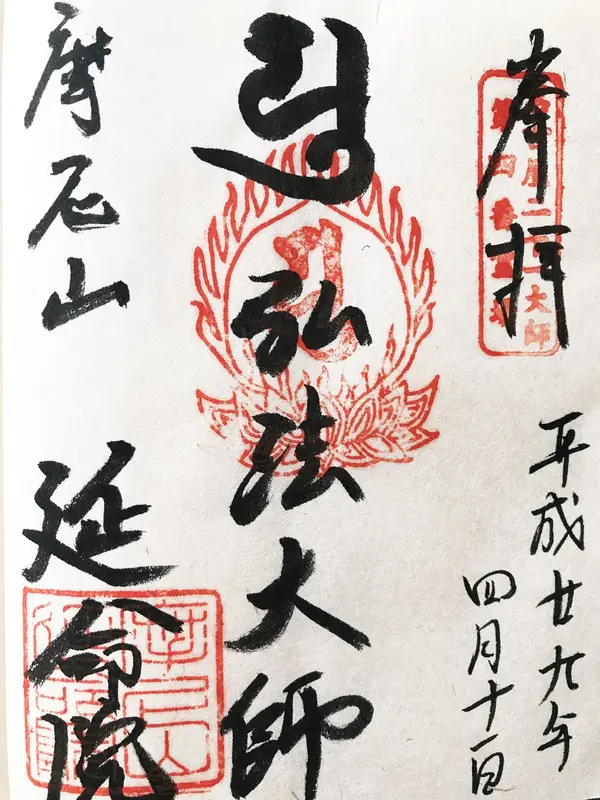 奉拝
平成廿九年
四月十一日
弘法大師
摩尼山
延命院